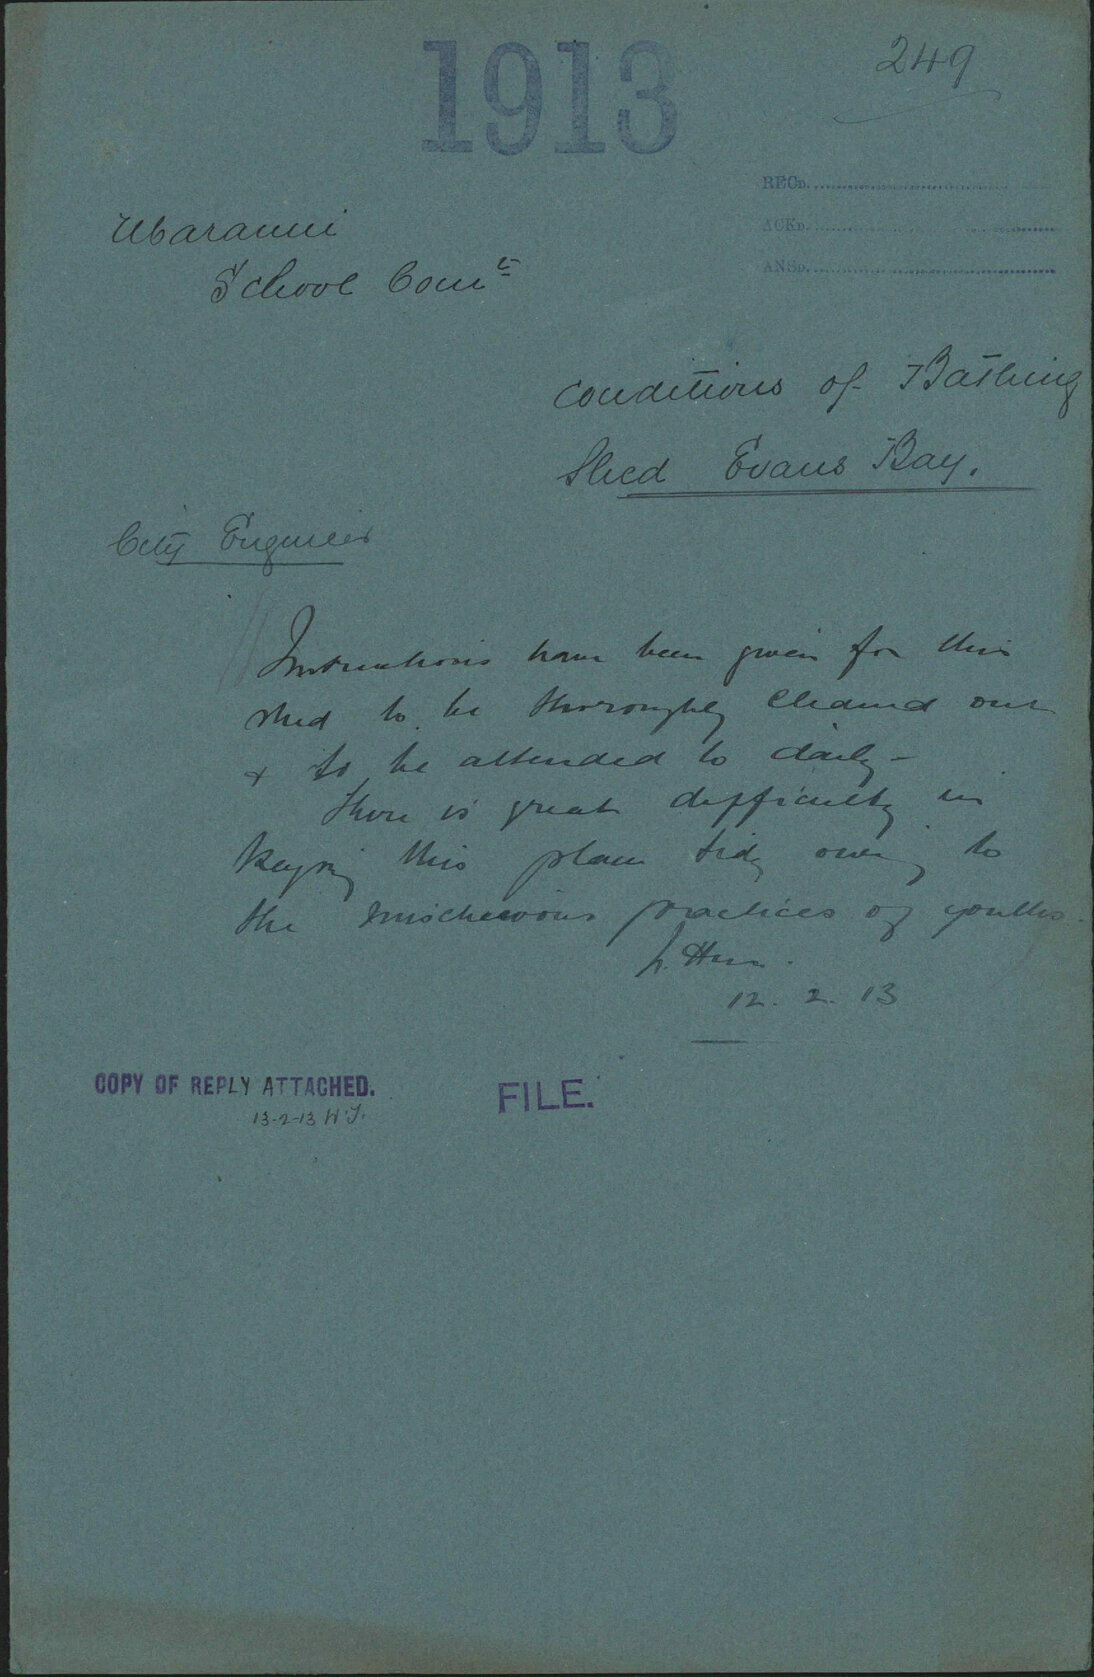 1913
249
RECD.
ACKD.
ANSD.
School Comte
Conditions of Bathing
Shed Evans Bay.
City Engineer
Instructions have been given for this
shed to be thoroughly cleaned out
& to be attended to daily -
There is great difficulty in
keeping this place tidy owing to
the mischievous practices of youths.
12. 2. 13
COPY OF REPLY ATTACHED.
13-2-13 W.J.
FILE.